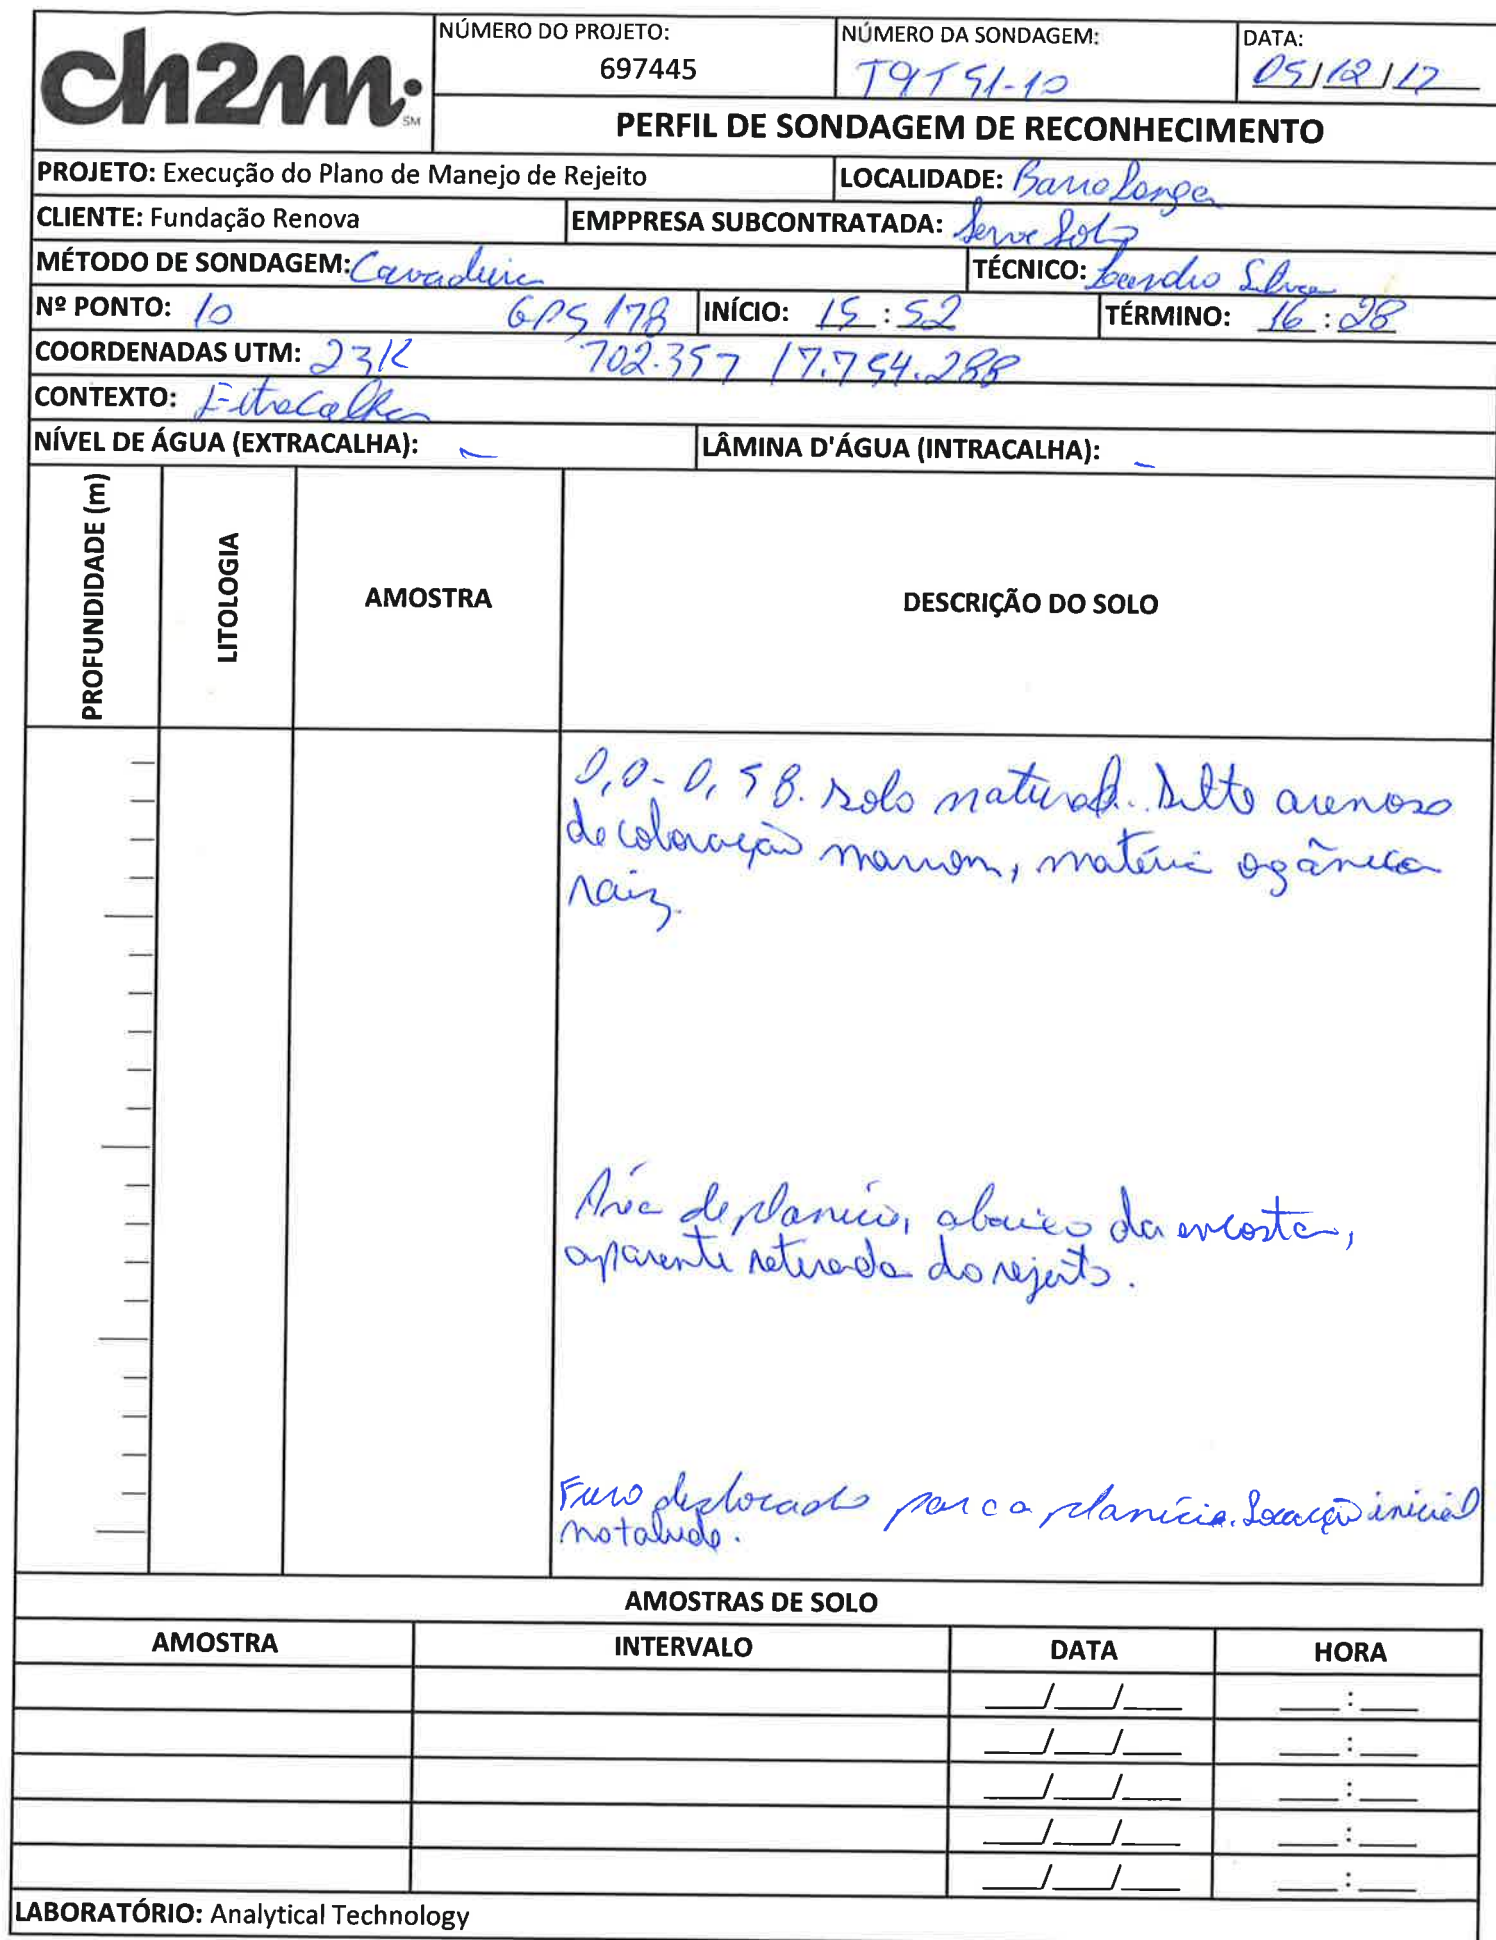 ch2m SM
NÚMERO DO PROJETO:
697445
NÚMERO DA SONDAGEM:
T9T51-10
DATA:
05/12/17
PERFIL DE SONDAGEM DE RECONHECIMENTO
PROJETO: Execução do Plano de Manejo de Rejeito
LOCALIDADE: Barra Longa
CLIENTE: Fundação Renova
EMPPRESA SUBCONTRATADA: Serve Solo
MÉTODO DE SONDAGEM: Cavadeira
TÉCNICO: Leandro Silva
Nº PONTO: 10 GPS 178
INÍCIO: 15:52
TÉRMINO: 16:28
COORDENADAS UTM: 23K 702.357 / 7.754.288
CONTEXTO: Extracalha
NÍVEL DE ÁGUA (EXTRACALHA): -
LÂMINA D'ÁGUA (INTRACALHA): -
PROFUNDIDADE (m)
LITOLOGIA
AMOSTRA
DESCRIÇÃO DO SOLO
0,0-0,58. solo natural. Silte arenoso
de coloração marrom, matéria ogânica
raiz.
Área de planície, abaixo da encosta,
aparente retirada do rejeito.
Furo deslocado para a planície. Locação inicial
no talude.
AMOSTRAS DE SOLO
AMOSTRA INTERVALO DATA HORA
___/___/___ ___:___
___/___/___ ___:___
___/___/___ ___:___
___/___/___ ___:___
___/___/___ ___:___
LABORATÓRIO: Analytical Technology